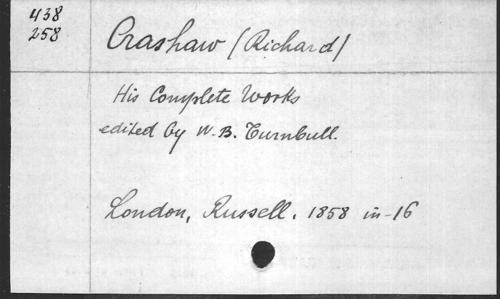 438
258
Crashaw (Richard)
His Complete Works
edited by W. B. Turnbull.
London, Russell. 1858 in-16